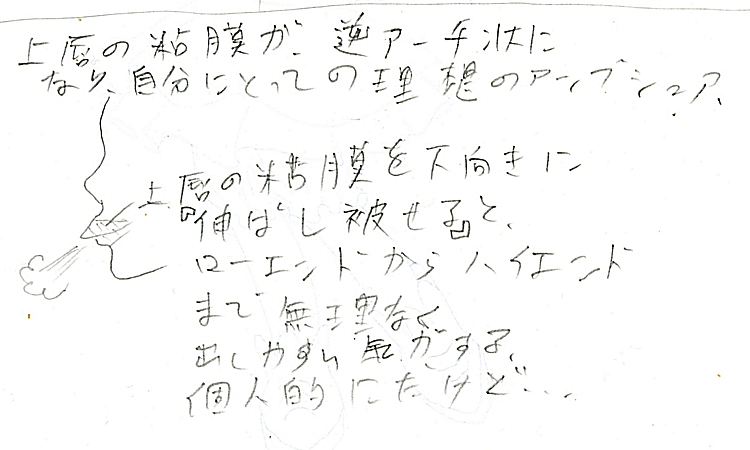 上唇の粘膜が、逆アーチ状に
なり、自分にとっての理想のアンブシュア、
上唇の粘膜を下向きに
『伸ばし被せる』と、
ローエンドからハイエンド
まで無理なく
出しやすい気がする、
個人的にだけど...